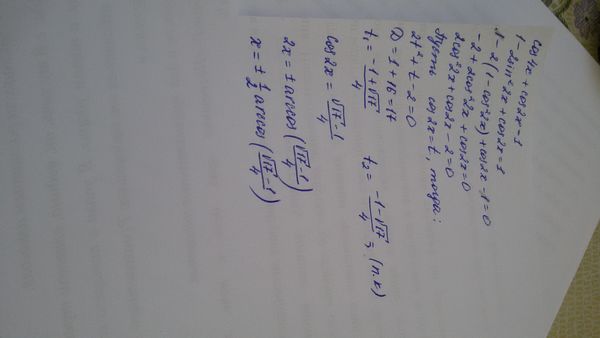 cos4x + cos2x = 1
1 - 2sin²2x + cos2x = 1
1 - 2(1 - cos²2x) + cos2x - 1 = 0
-2 + 2cos²2x + cos2x = 0
2cos²2x + cos2x - 2 = 0
Пусть cos2x = t, тогда:
2t² + t - 2 = 0
D = 1 + 16 = 17
t₁ = (-1 + √17)/4 t₂ = (-1 - √17)/4 (п.к)
cos2x = (√17 - 1)/4
2x = ± arccos((√17 - 1)/4)
x = ± 1/2 arccos((√17 - 1)/4)